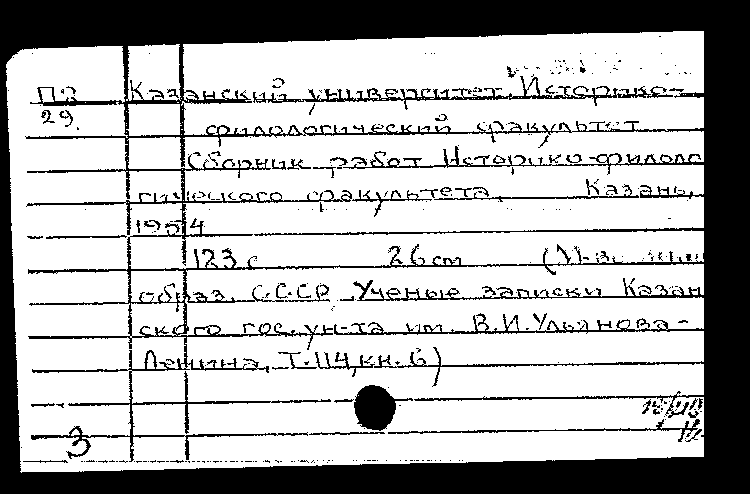 П3 Казанский университет. Историко-
29. филологический факультет
Сборник работ Историко-филоло
гического факультета, Казань,
1954
123 с 26 cm (М-во
образ. СССР Ученые записки Казан
ского гос. ун-та им. В.И.Ульянова-
Ленина, Т.114, кн. 6)
3